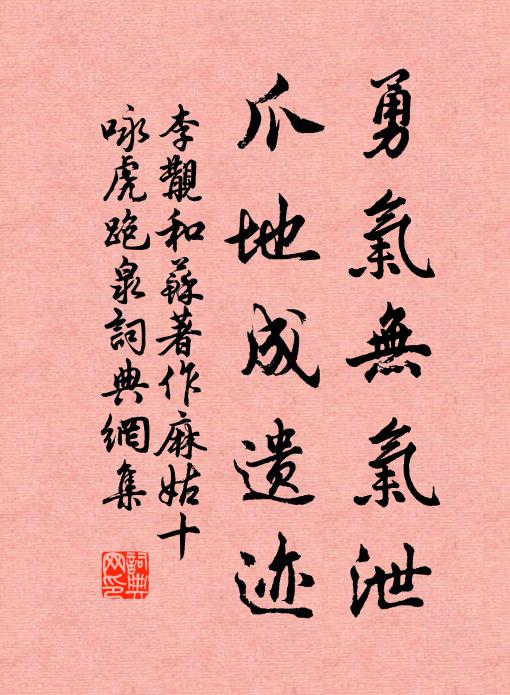 勇氣無氣泄
爪地成遺迹
李覯和蘇著作麻姑十
咏虎跑泉詞典網集
詞典網印